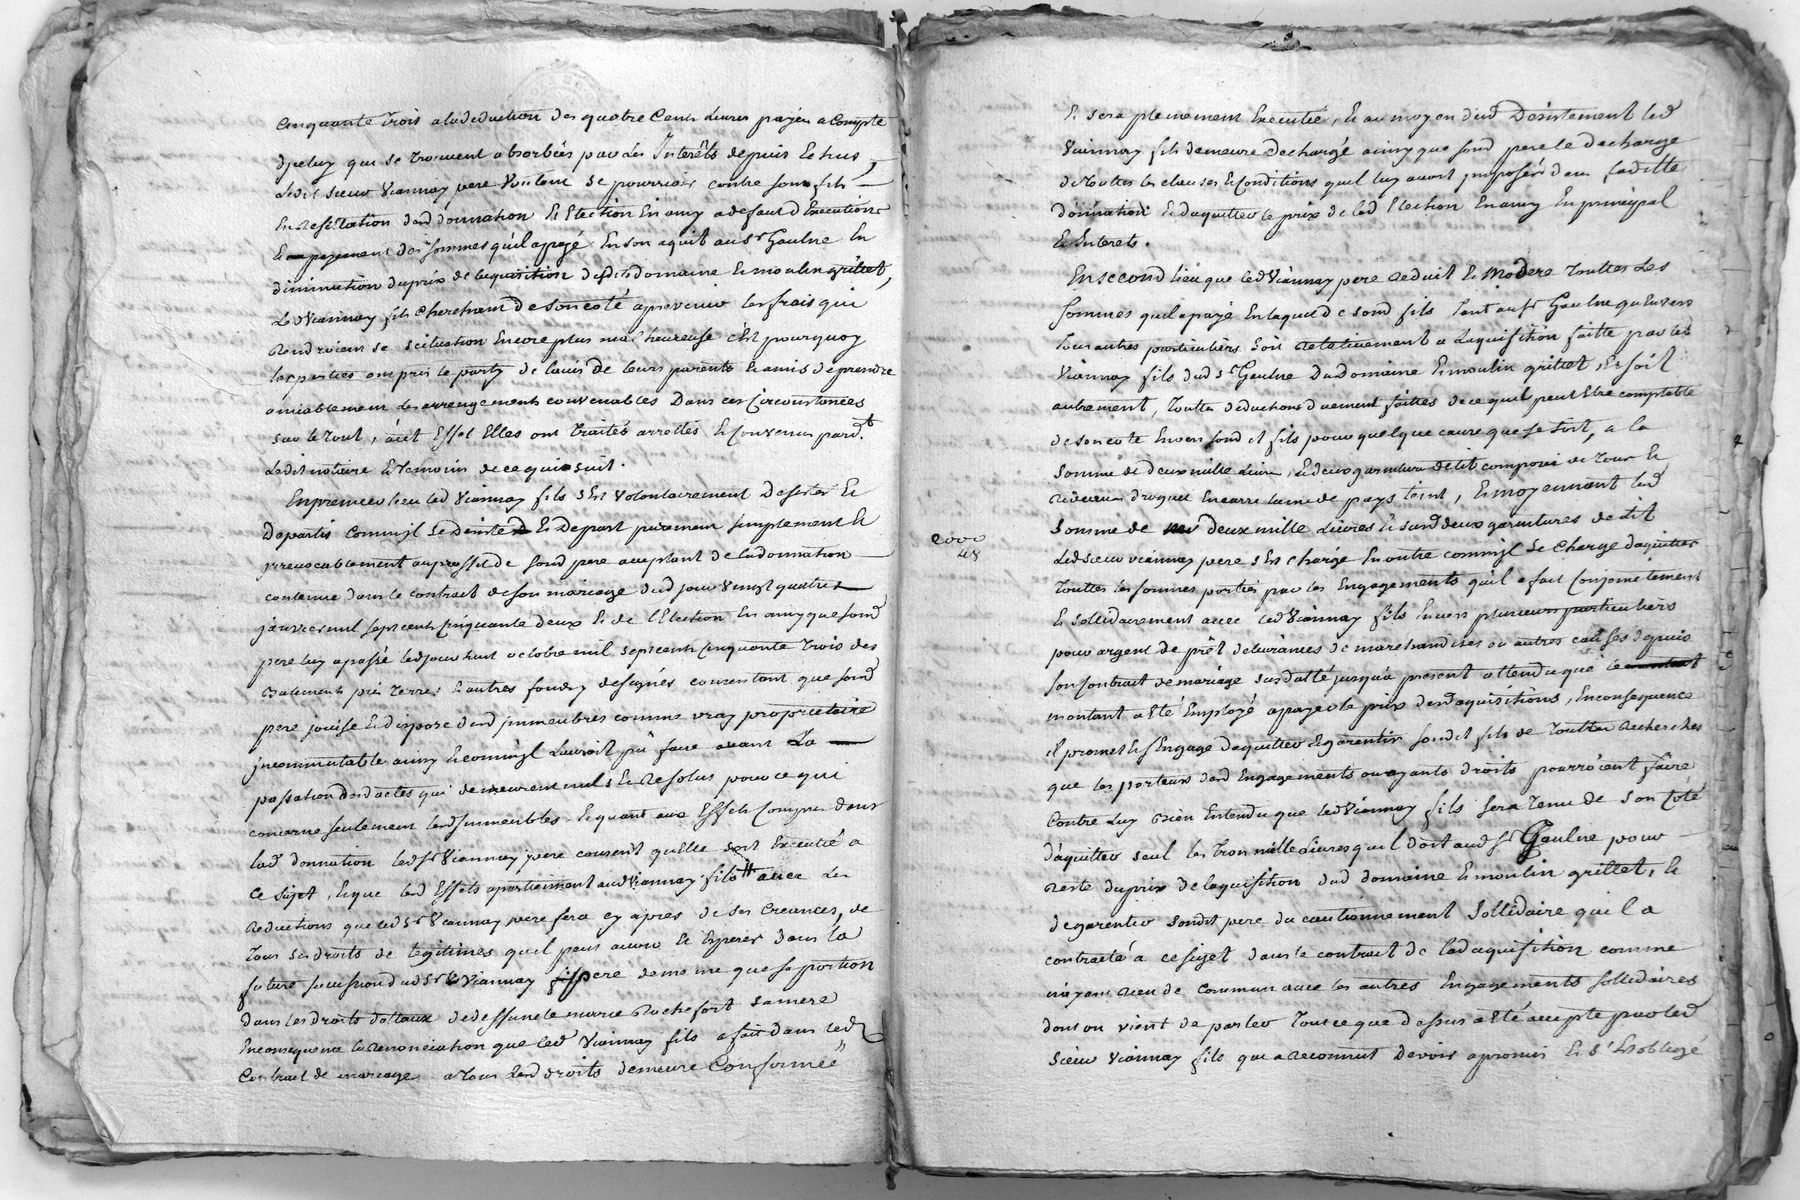 Cinquante trois a la deduction des quatre Cents Livres payées a Compte
dyceluy qui se trouvent absorbées par les Interêts depuis Echus,
Ledit sieur Viannay pere Voulant se pourvoir contre son fils
En Resiliation dud donnation et Election En amy a defaut d'Execution
Et payement des sommes quil a payé En son aquit au Sr Gaulne En
diminution du prix de laquisition dudit domaine Et moulin grillet,
Led Viannay fils Cherchant De son coté a prevenir les frais qui
Rendroient sa scituation Encore plus malheureuse c'Est pourquoy
les parties ont pris le party de lavis De leurs parents Et amis de prendre
amiablement des arrengements convenables Dans ces Circonstances
sur le tout, a cet Effet Elles ont traités arrettés Et Convenus pardt
Ledit notaire Et temoins de ce qui suit.
En premier lieu led Viannay fils s'Est Volontairement Desisté Et
Departis Comme jl se desiste Et Depart purement simplement Et
jrrevocablement au proffit de sond pere acceptant de la donnation
contenue dans le contract de son mariage dud jour vingt quatre
janvier mil sept cents Cinquante deux Et de l'Election En amy que sond
pere luy a passé led jour huit octobre mil sept cents Cinquante trois des
Batiments prés terres Et autres fonds y designés consentant que sond
pere jouisse Et dispose desd jmmeubles comme vray proprietaire
jncommutable ainsy Et comme jl Lauroit pû faire avant La
passation desd actes qui demeurent nuls Et Resolus pour ce qui
concerne seulement lesd jmmeubles, Et quant aux Effets Compris dans
lad donnation led Sr Viannay pere consent quelle soit Executée a
Ce sujet, Et que lesd Effets apartiennent aud Viannay fils avec les
Reductions que led Sr Viannay pere fera cy apres de ses Creances, de
tous ses droits de legitimes quil peut avoir Et Esperer dans la
future succession dud Sr Viannay pere de meme que sa portion
dans les droits dottaux de deffuncte marie Rochefort sa mere
En consequence la Renonciation que led Viannay fils a fait dans led
Contract de mariage a tous lesd droits demeure Confirmée
Et sera pleinement Executée, Et au moyen dud Desistement led
Viannay fils demeure Dechargé ainsy que sond pere le decharge
de touttes les clauses Et Conditions quil luy avoit jmposées dans laditte
donnation Et daquitter le prix de lad Election En amy En principal
Et Interets.
En second lieu que led Viannay pere Reduit Et Modere touttes les
sommes quil a payé En laquit de sond fils tant au Sr Gaulne qu'Envers
tous autres particuliers soit Relativement a Laquisition faitte par led
Viannay fils dud Sr Gaulne Du Domaine Et moulin grillet, Et soit
autrement, touttes deductions duement faittes de ce quil peut Etre comptable
de son coté Envers sond fils pour quelque cause que ce soit, a la
somme de deux mille Livres, Et deux garnitures de lit composées de tour Et
Rideaux droguet En carré laine de pays teint, Et moyennant lad
somme de deux mille Livres Et lesd deux garnitures de lit
Led sieur viannay pere s'Est chargé En outre comme jl se Charge daquitter
touttes les sommes portées par les Engagements quil a fait Conjointement
Et sollidairement avec led Viannay fils Envers plusieurs particuliers
pour argent de prêt delivrances de marchandises ou autres causes depuis
son Contract de mariage susdatté jusqu'a present attendu que le
montant a Eté Employé a payer le prix desd aquisitions, En consequence
il promet Et s'Engage daquitter Et garentir sondit fils de touttes Recherches
que les porteurs desd Engagements ou ayants droits pourroient faire
Contre Luy Bien Entendu que led Viannay fils sera tenu de son Coté
d'aquitter seul les trois mille Livres quil doit aud Sr Gaulne pour
Reste du prix de laquisition dud domaine Et moulin grillet, Et
de garentir sondit pere du cautionnement sollidaire quil a
contracté a ce sujet dans le contract de lad aquisition comme
n'ayant Rien de Commun avec les autres Engagements sollidaires
dont on vient de parler tout ce que dessus a Eté accepté par led
sieur Viannay fils qui a Reconnut Devoir a promis Et s'Est obligé
2000
48